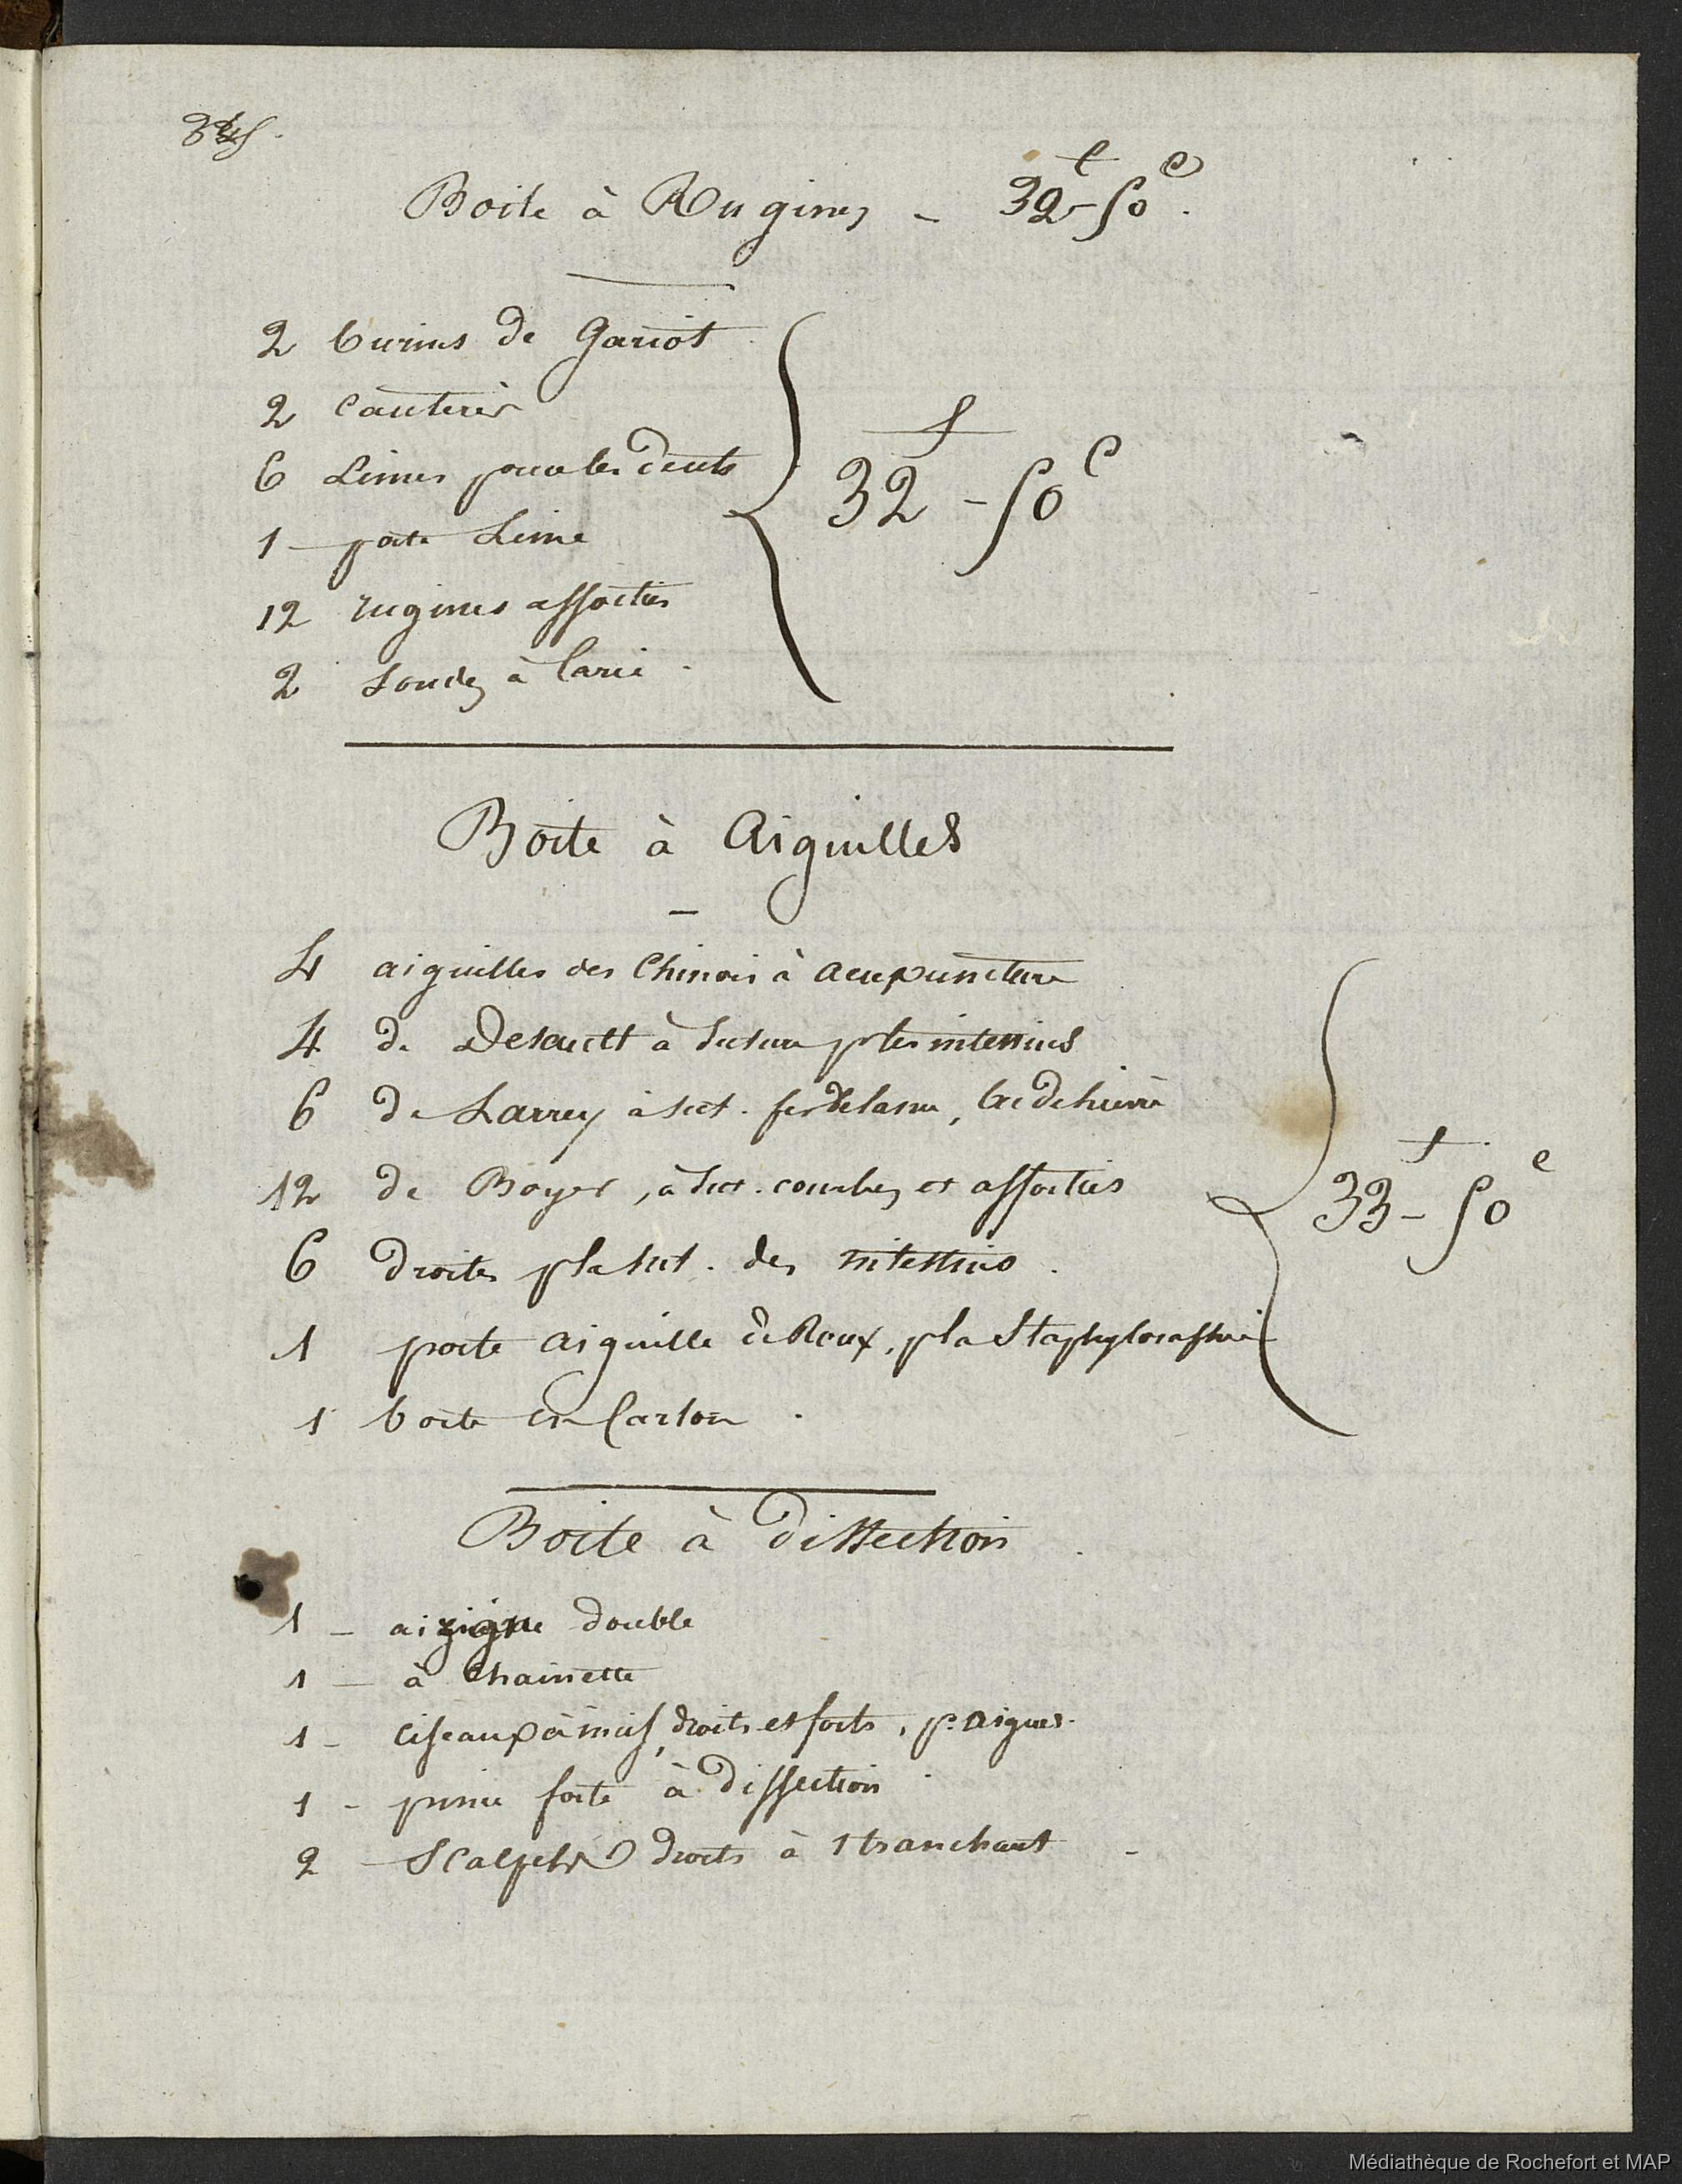 Boite à Rugines - 32 f - 50 c.
2 burins de Gariot
2 Cautères
6 Limes pour les dents
1 - porte Lime
12 rugines assorties
2 sondes à Carie.
32 f - 50 c
Boite à Aiguilles
4 aiguilles des Chinois à acupuncture
4 de Desault à suture p les intestins
6 de Larrey à sut. fer de lance, bec de lièvre
12 de Boyer, à sut. courbes et assorties
6 droites p la sut. des intestins.
1 porte aiguille de Roux, p la Staphyloraphie
1 boite en Carton.
33 f - 50 c
Boite à dissection
1 - airigne double
1 - à chainette
1 - Ciseaux à incis, droits et forts, p. aigues.
1 - pince forte à dissection.
2 - Scalpels droits à 1 tranchant -
Médiathèque de Rochefort et MAP